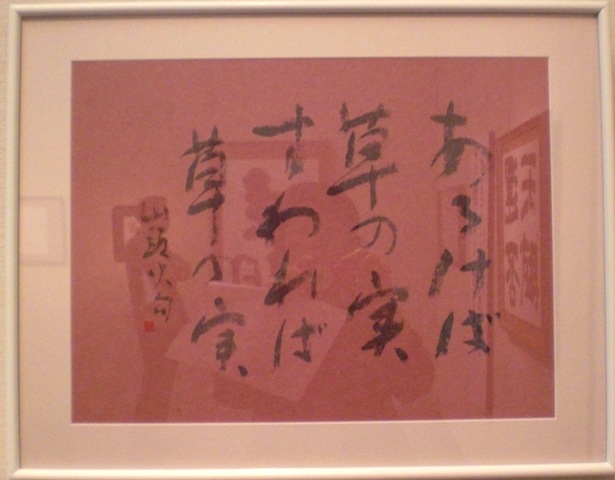 あるけば
草の実
すわれば
草の実
山頭火句